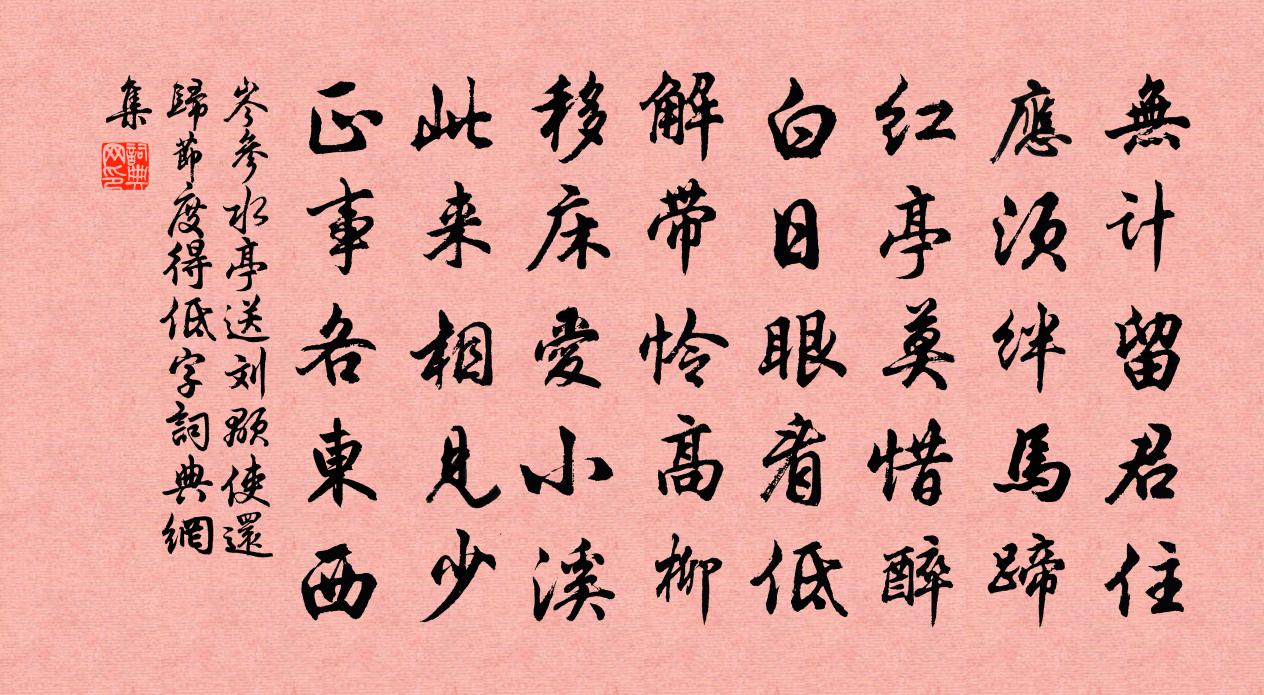 無计留君住
應须绊馬蹄
红亭莫惜醉
白日眼看低
解带怜高柳
移床愛小溪
此来相見少
正事各東西
岑參水亭送刘颙使還
歸節度得低字詞典網
集
詞典网印